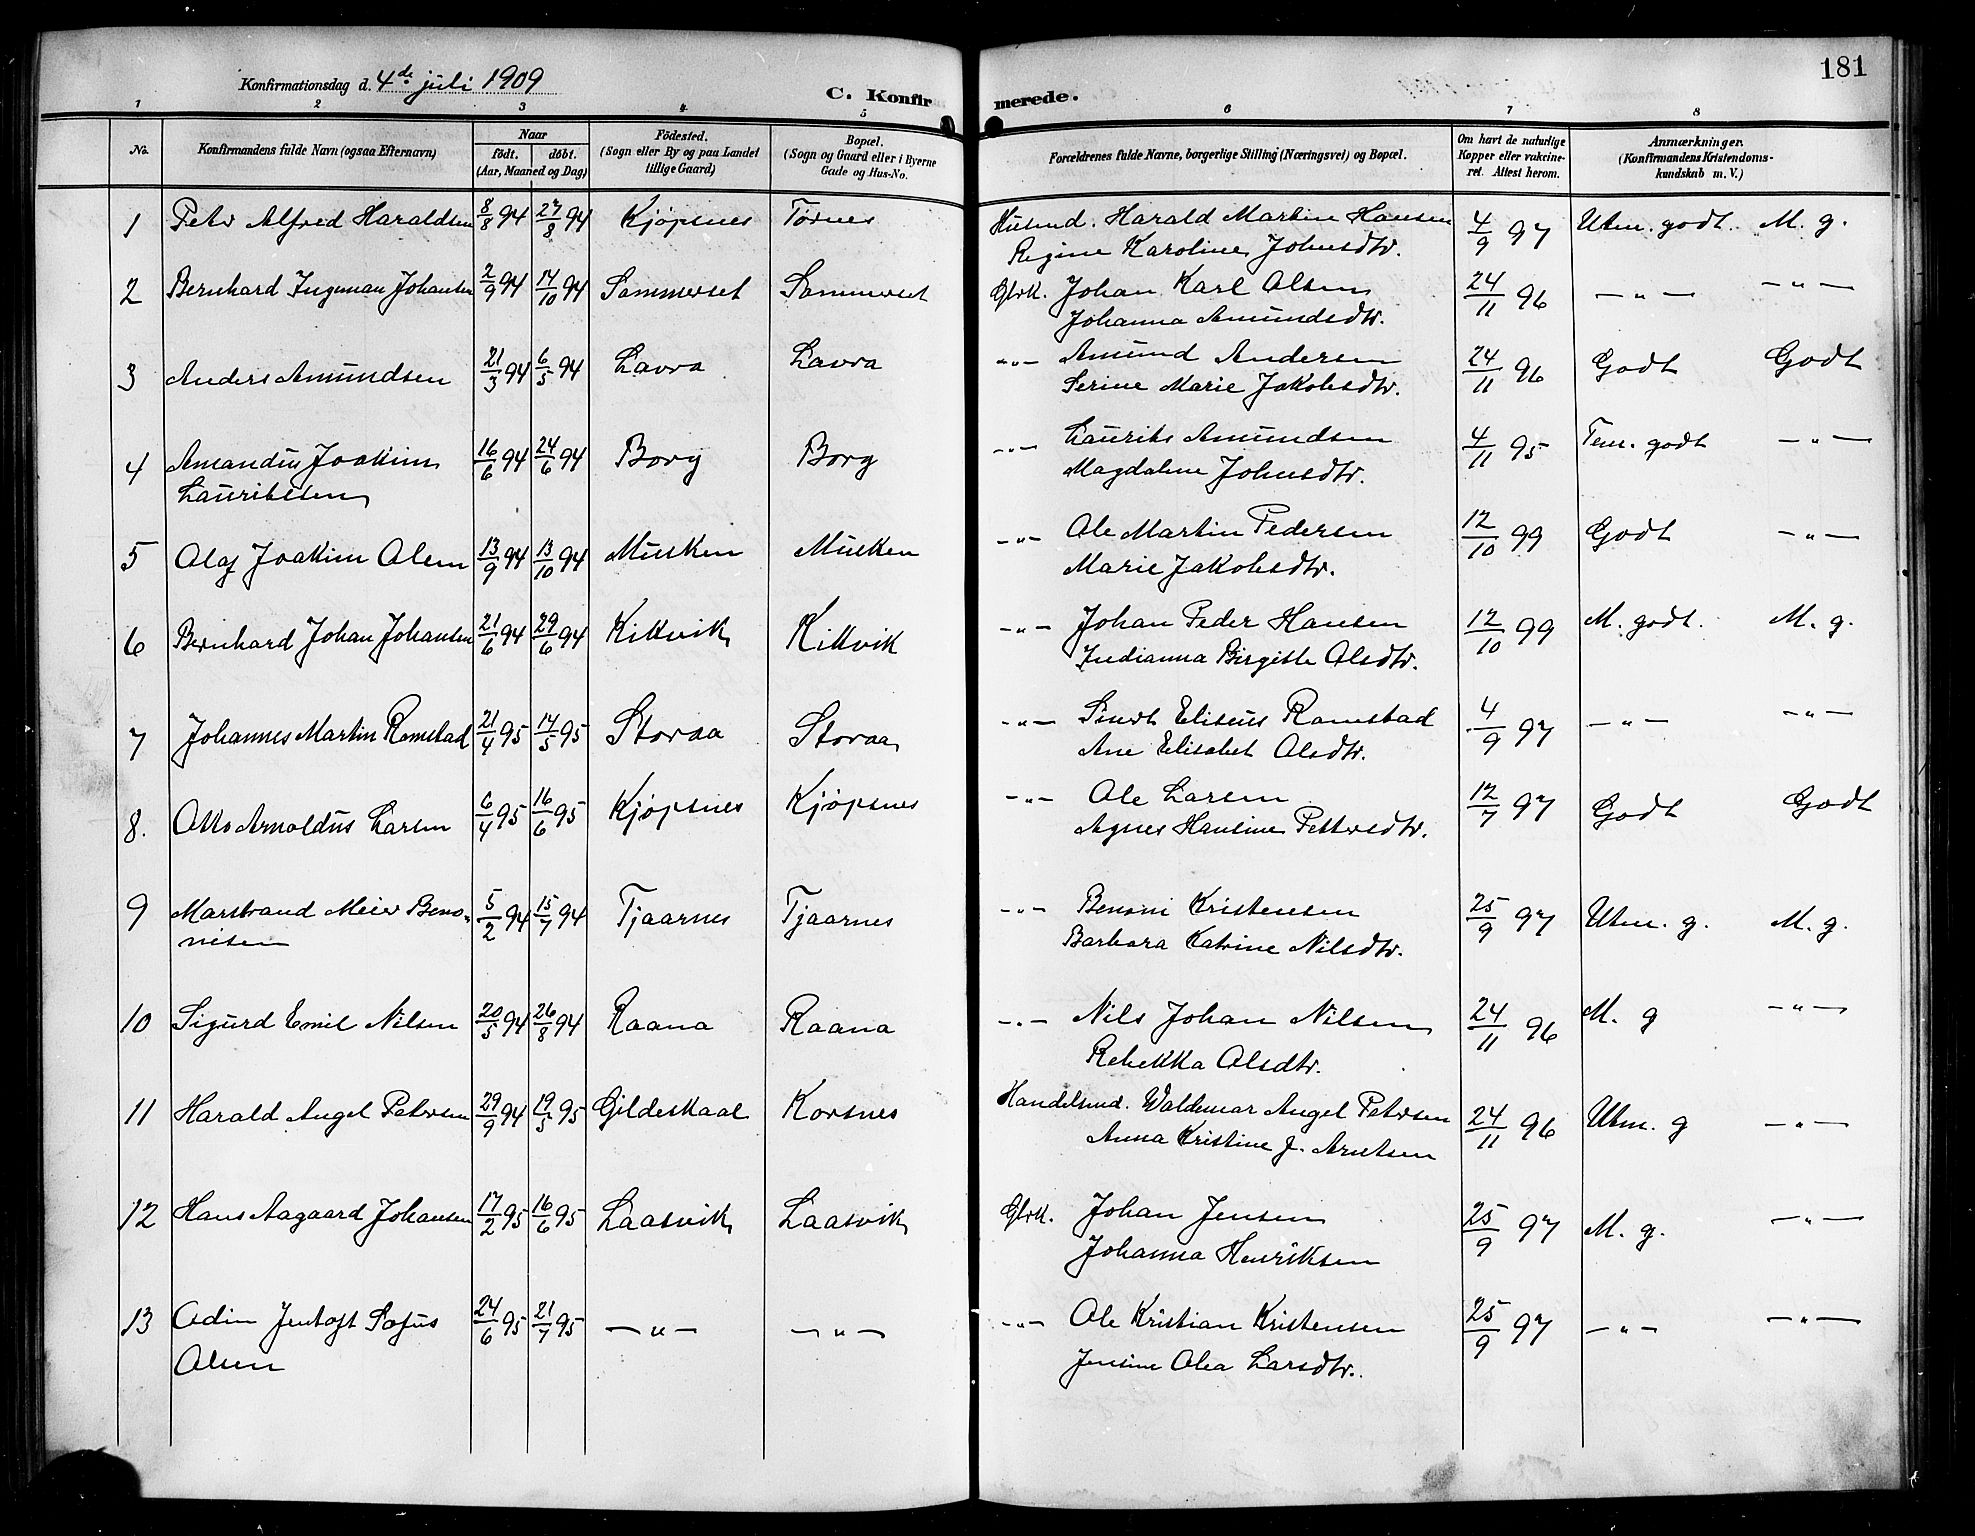 181
Konfirmationsdag d. 4de juli 1909
C. Konfirmerede.
1 2 3 4 5 6 7 8
No.
Konfirmandens fulde Navn (ogsaa Efternavn)
Naar
født. døbt.
(Aar, Maaned og Dag)
Födested.
(Sogn eller By og paa Landet
tillige Gaard)
Bopæl.
(Sogn og Gaard eller i Byerne
Gade og Hus-No.
Forældrenes fulde Navne, borgerlige Stilling (Næringsvei) og Bopæl.
Om havt de naturlige
Kopper eller vakcine-
ret. Attest herom.
Anmærkninger.
(Konfirmandens Kristendoms-
kundskab m. V.)
1 Peter Alfred Haraldsen 8/8 94 27/8 94 Kjöpsnes Tornes Husmd. Harald Martin Hansen 4/9 97 Utm. godt. M. g.
Regine Karoline Johnsdtr.
2 Bernhard Ingeman Johansen 2/9 94 14/10 94 Sommerset Sommerset Gbrk. Johan Karl Olsen 24/11 96 — " — — " —
Johanna Amundsdtr.
3 Anders Amundsen 21/3 94 6/5 94 Lavra Lavra — " — Amund Andersen 24/11 96 Godt Godt
Serine Marie Jakobsdtr.
4 Amandus Joakim 16/6 94 24/6 94 Borg Borg — " — Laurits Amundsen 4/11 95 Tem. godt — " —
Lauritssen Magdalene Johnsdtr.
5 Olaf Joakim Olsen 13/9 94 13/10 94 Musken Musken — " — Ole Martin Pedersen 12/10 99 Godt — " —
Marie Jakobsdtr.
6 Bernhard Johan Johansen 21/6 94 29/6 94 Kilkvik Kilkvik — " — Johan Peder Hansen 12/10 99 M. godt. M. g.
Indianna Birgitte Olsdtr.
7 Johannes Martin Romstad 21/4 95 14/5 95 Storaa Storaa — " — Sivert Eliseus Romstad 4/9 97 — " — — " —
Ane Elisabet Olsdtr.
8. Otto Arnoldus Larsen 6/4 95 16/6 95 Kjöpsnes Kjöpsnes — " — Ole Larsen 12/7 97 Godt Godt
Agnes Hansine Pettersdtr.
9 Marstrand Meier Beno- 5/2 94 15/7 94 Tjaarnes Tjaarnes — " — Benoni Kristensen 25/9 97 Utm. g. M. g.
nisen Barbara Katrine Nilsdtr.
10 Sigurd Emil Nilsen 20/5 94 26/8 94 Raana Raana — " — Nils Johan Nilsen 24/11 96 M. g — " —
Rebekka Olsdtr.
11 Harald Angel Petersen 29/9 94 19/5 95 Gildeskaal Korsnes Handelsmd. Waldemar Angel Petersen 24/11 96 Utm. g — " —
Anna Kristine J. Arntsen
12 Hans Aagaard Johansen 17/2 95 16/6 95 Laasvik Laasvik Gbrk. Johan Jensen 25/9 97 M. g. — " —
Johanna Henriksen
13 Odin Jentoft Sofus 24/6 95 21/7 95 — " — — " — — " — Ole Kristian Kristensen 25/9 97 — " — — " —
Olsen Jensine Olea Larsdtr.